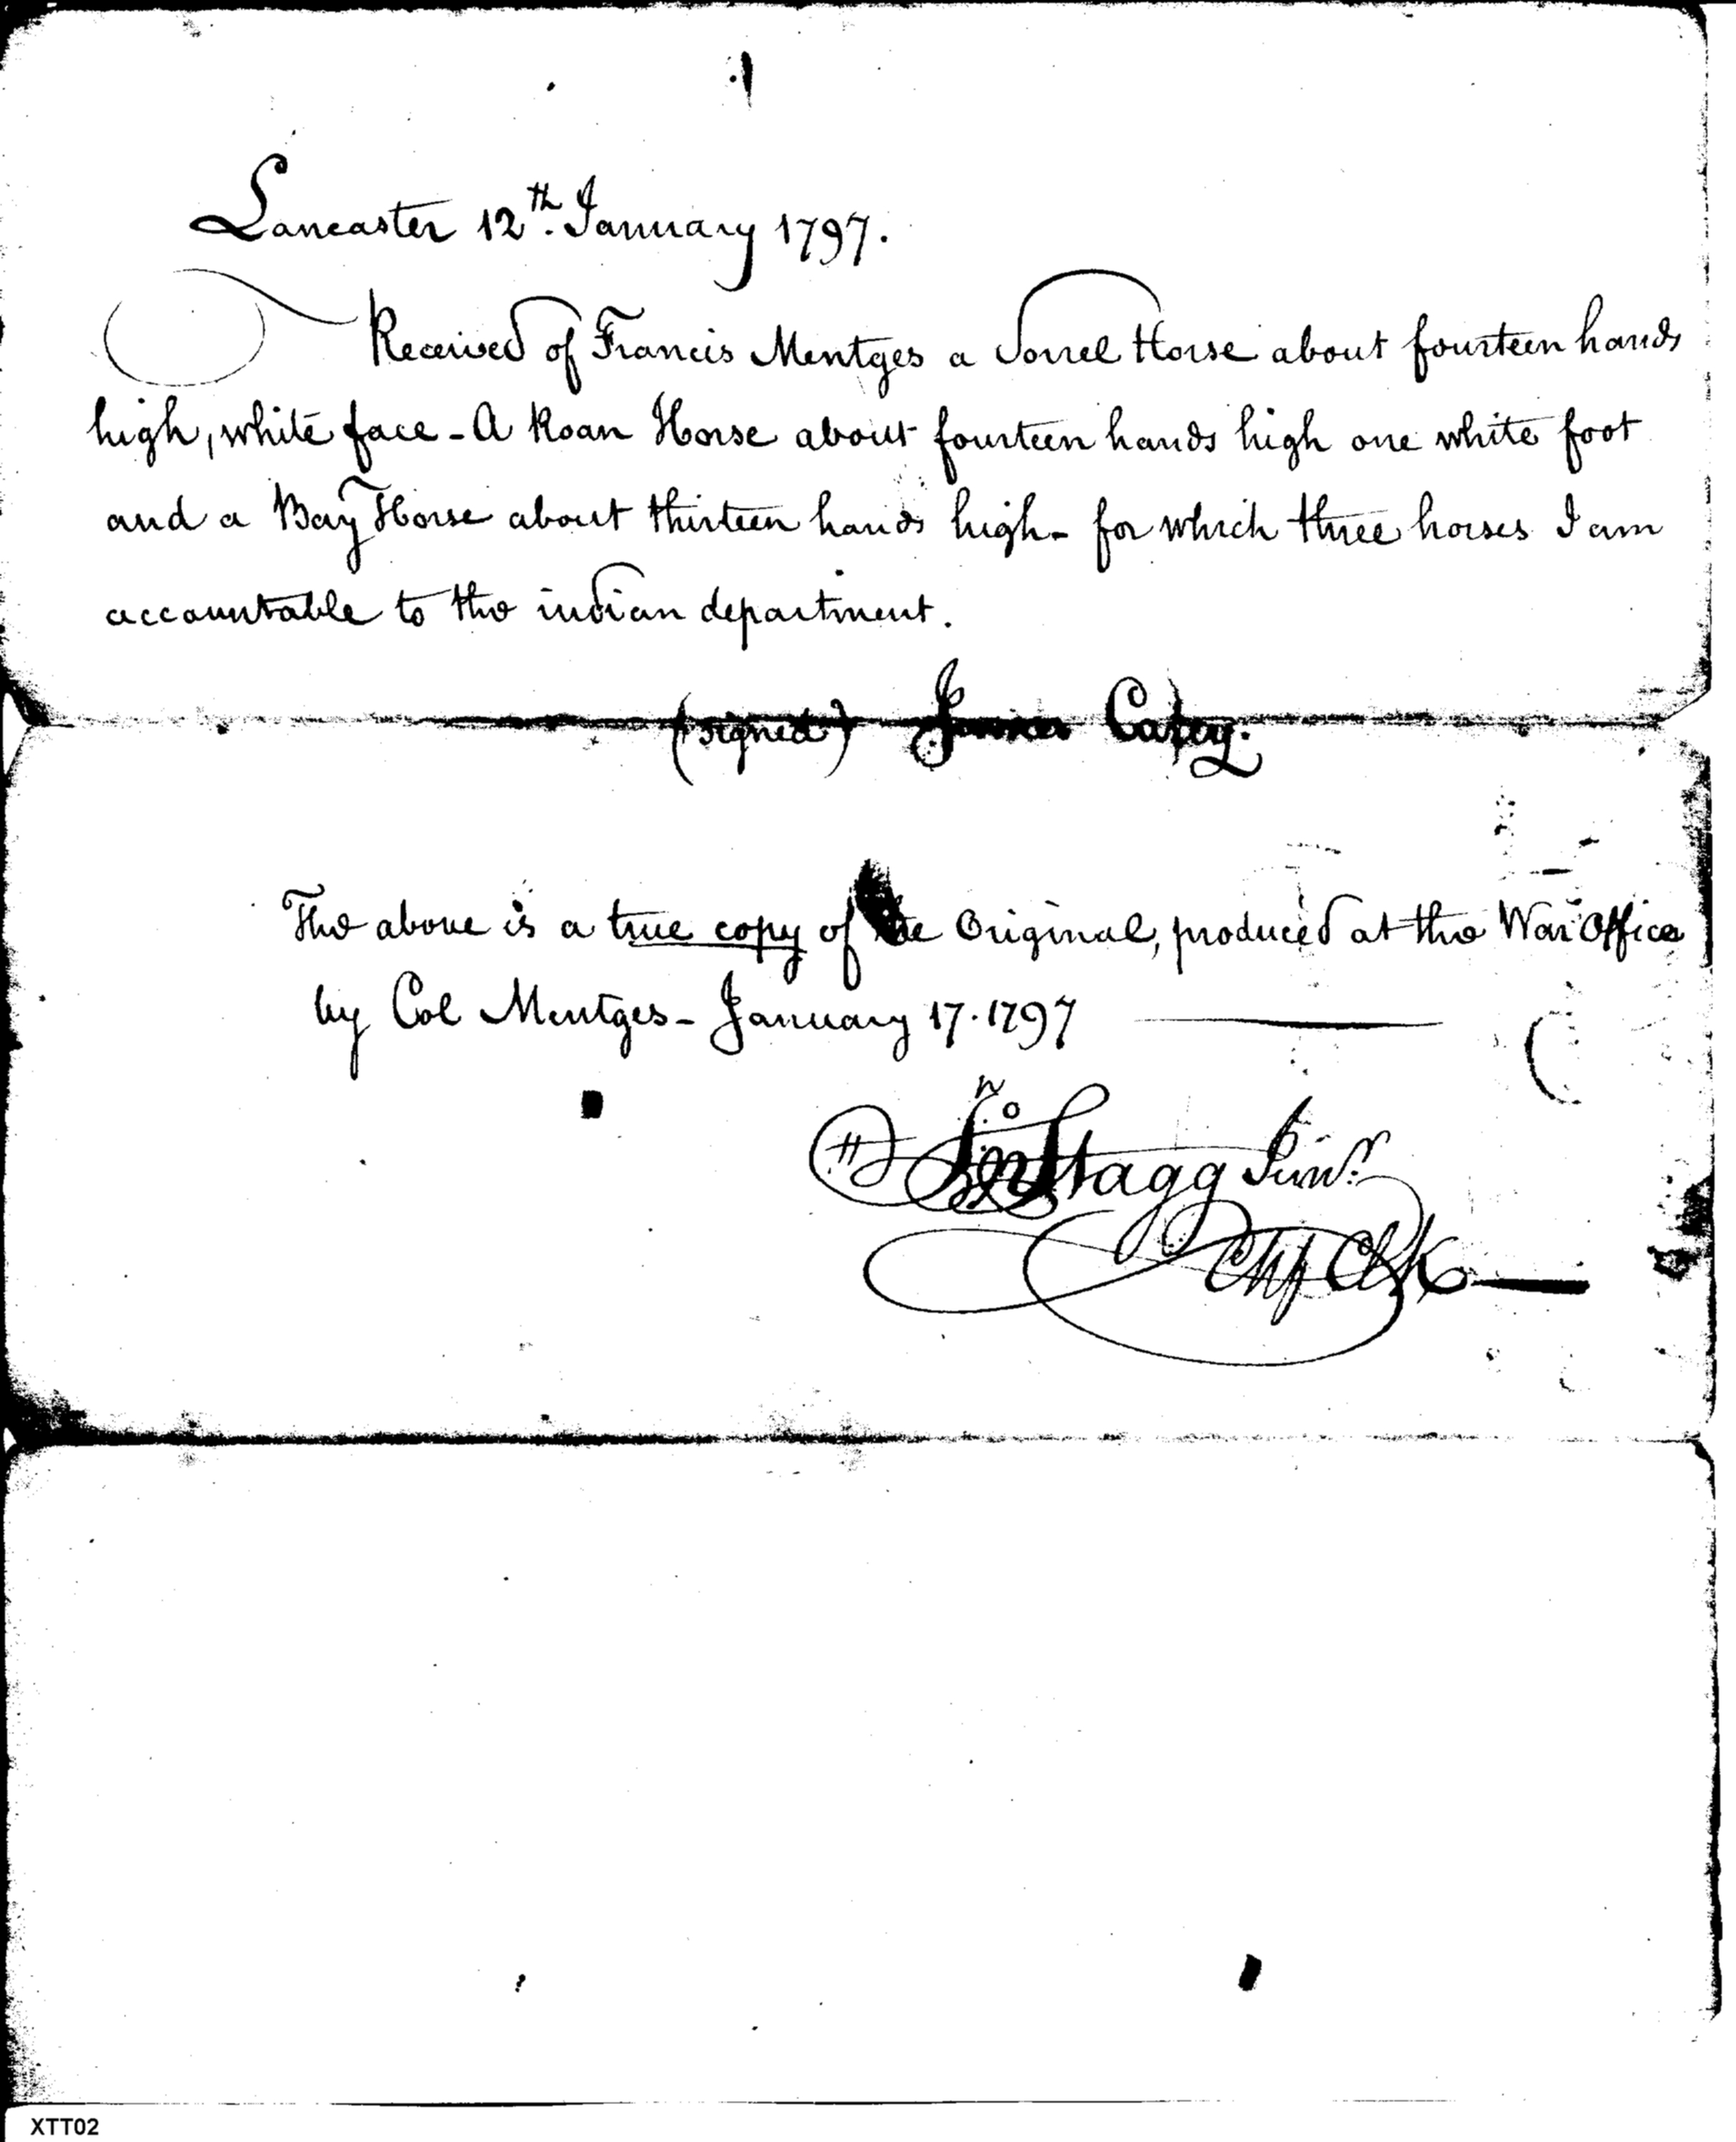 Lancaster 12th. January 1797.
Received of Francis Mentges a Sorrel Horse about fourteen hands
high, white face - A Roan Horse about fourteen hands high one white foot
and a Bay Horse about thirteen hands high - for which three horses I am
accountable to the indian department.
(signed) James Carey.
The above is a true copy of the Original, produced at the War Office
by Col Mentges - January 17. 1797
Jno Stagg Junr.
Chf Clk
XTT02